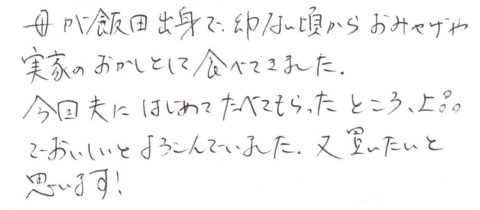 母が飯田出身で、幼ない頃からおみやげや
実家のおかしとして食べてきました。
今回夫にはじめてたべてもらったところ、上品
でおいしいとよろこんでいました。又買いたいと
思います!